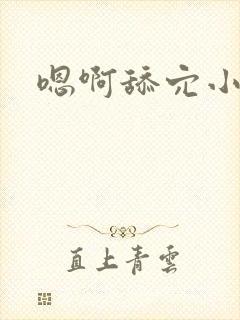 嗯啊舔穴小
直上青雲